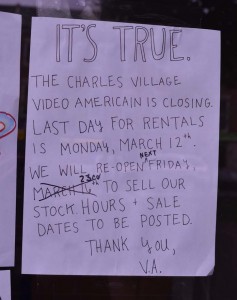 IT'S TRUE.
THE CHARLES VILLAGE
VIDEO AMERICAIN IS CLOSING.
LAST DAY FOR RENTALS
IS MONDAY, MARCH 12th.
WE WILL RE-OPEN NEXT FRIDAY
MARCH 23rd TO SELL OUR
STOCK. HOURS + SALE
DATES TO BE POSTED.
THANK YOU,
V.A.